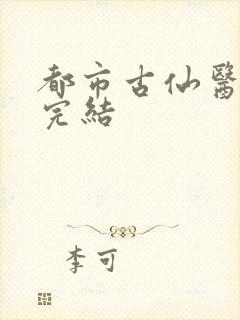 都市古仙醫
完結
李可